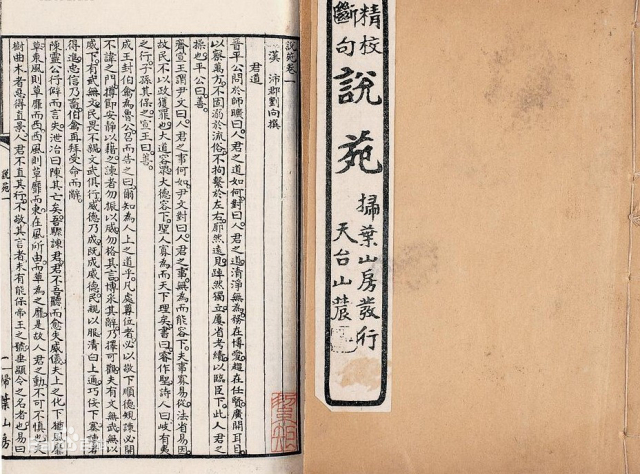 精校
斷句
說苑
掃葉山房發行
天台山農
說苑卷一
漢 沛郡劉向撰
君道
晉平公問於師曠曰人君之道如何對曰人君之道清淨無為務在博愛趨在任賢廣開耳目以
察萬方不固溺於流俗不拘繫於左右廓然遠見踔然獨立屢省考績以臨臣下此人君之
操也平公曰善
齊宣王謂尹文曰人君之事何如尹文對曰人君之事無為而能容下夫事寡易從法省易因
故民不以政獲罪也大道容眾大德容下聖人寡為而天下理矣書曰睿作聖詩人曰岐有夷
之行子孫其保之宣王曰善
成王封伯禽為魯公召而告之曰爾知為人上之道乎凡處尊位者必以敬下順德規諫必開
不諱之門撙節安靜以藉之諫者勿振以威勿格其言博采其辭乃擇可觀夫有文無武無以
威下有武無文民畏不親文武俱行威德乃成既成威德民親以服清白上通巧佞下塞諫者
得進忠信乃畜伯禽再拜受命而辭
陳靈公行僻而言失泄冶曰陳其亡矣吾驟諫君君不吾聽而愈失威儀夫上之化下猶風靡
草東風則草靡而西西風則草靡而東在風所由而草為之靡是故人君之動不可不慎也夫
樹曲木者惡得直景人君不直其行不敬其言者未有能保帝王之號垂顯令之名者也易曰
說苑一
一
掃葉山房